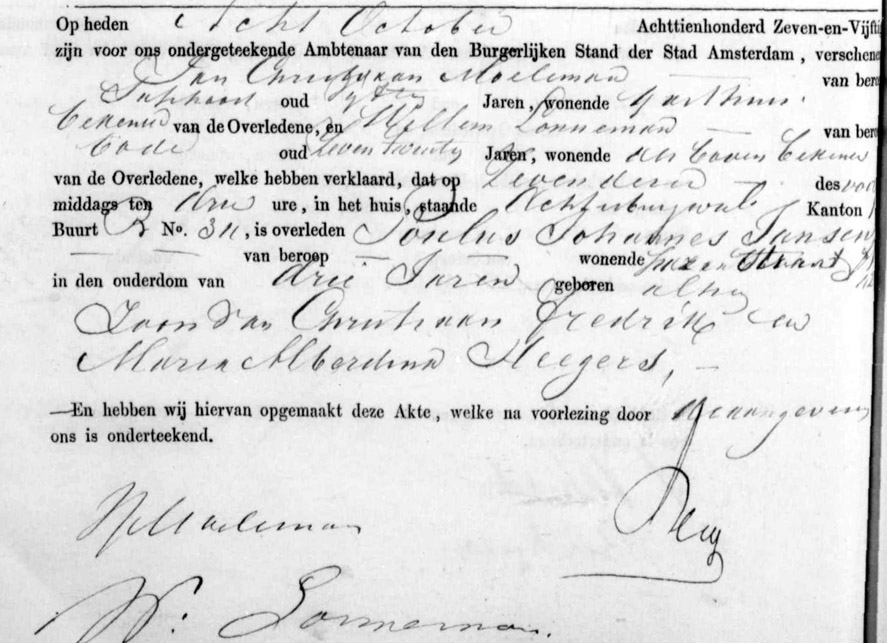 Op heden acht October Achttienhonderd Zeven-en-Vijfti
zijn voor ons ondergeteekende Ambtenaar van den Burgerlijken Stand der Stad Amsterdam, verschene
Jan Christiaan Moeleman van bero
oud Jaren, wonende Gasthuis
bekende van de Overledene, en Willem Lonneman van bero
bode oud zeven twintig Jaren, wonende als boven bekende
van de Overledene, welke hebben verklaard, dat op Zevenden des voor
middags ten drie ure, in het huis, staande Achterburgwal Kanton
Buurt B No. 34, is overleden Poulus Johannes Jansen
van beroep wonende
in den ouderdom van drie Jaren geboren alhier
Zoon van Christiaan Fredrik en
Maria Alberdina Heegers,
—En hebben wij hiervan opgemaakt deze Akte, welke na voorlezing door de aangevers
ons is onderteekend.
Moeleman
W. Lonneman.